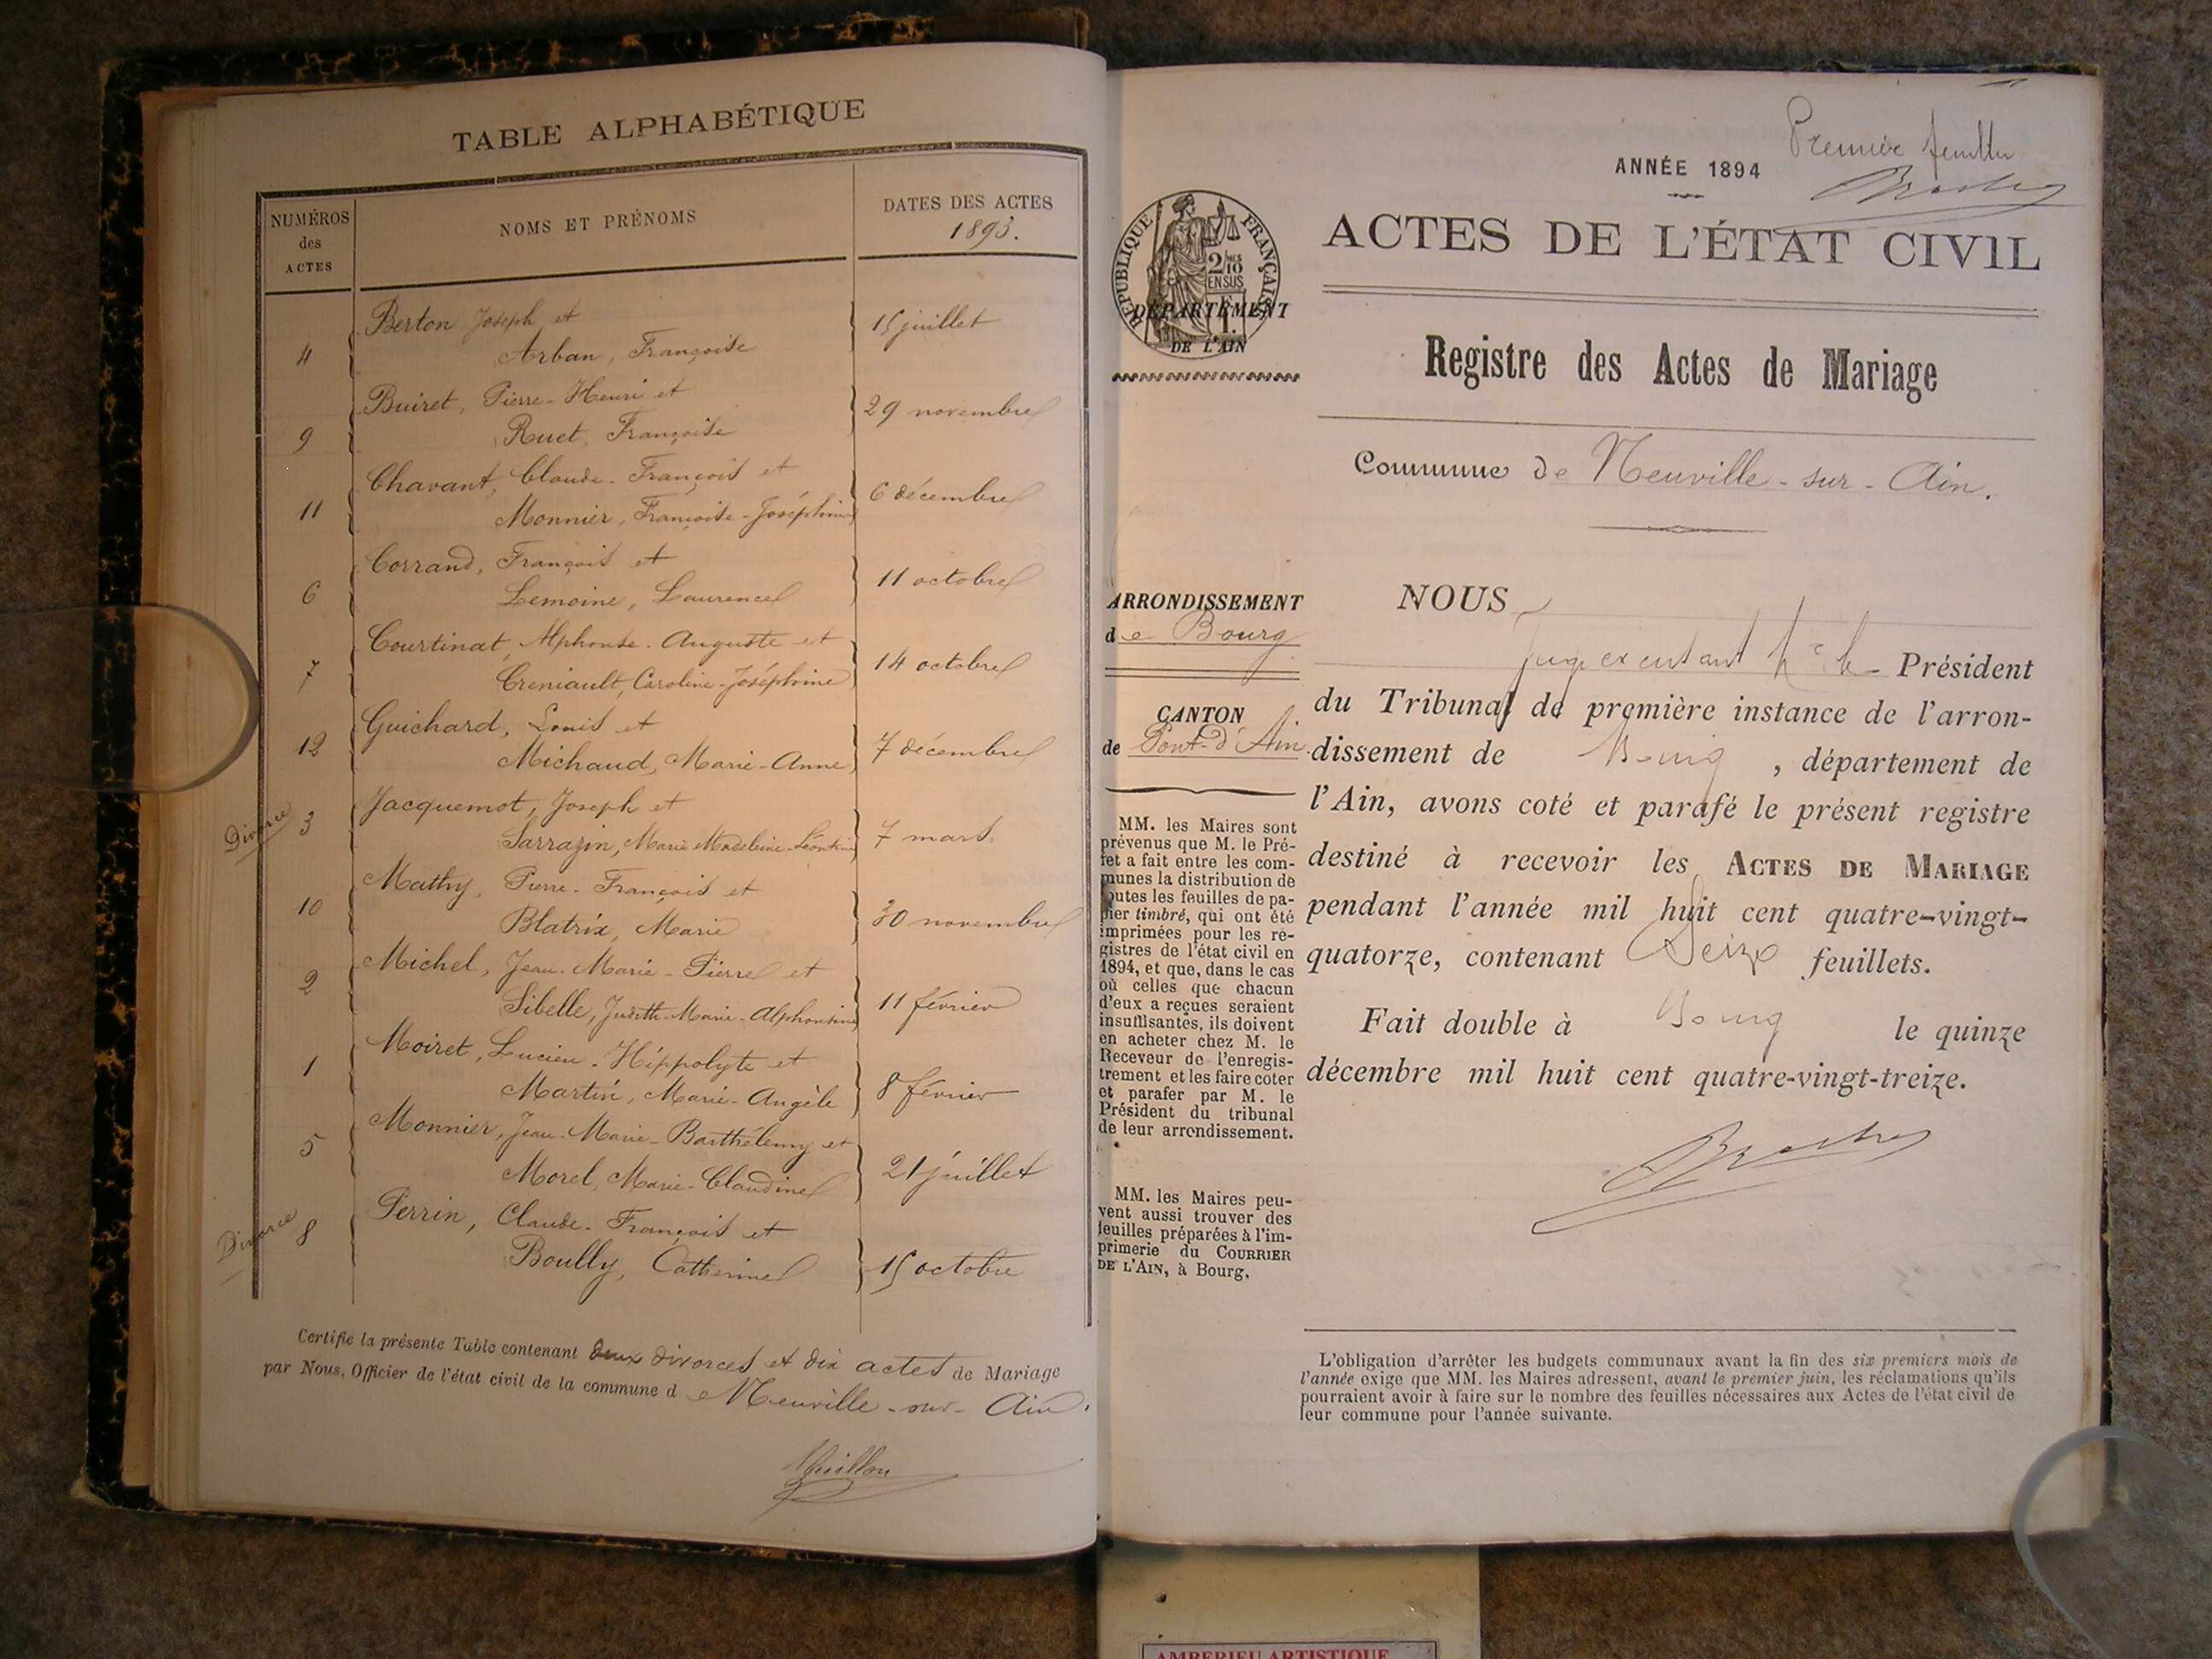 TABLE ALPHABÉTIQUE
NUMÉROS
des
ACTES
NOMS ET PRÉNOMS
DATES DES ACTES
1893.
Berton Joseph et
4 Arban, Françoise 15 juillet
Buiret, Pierre-Henri et
9 Ruet, Françoise 29 novembre
Chavant, Claude-François et
11 Monnier, Françoise-Joséphine 6 décembre
Corrand, François et
6 Lemoine, Laurence 11 octobre
Courtinat, Alphonse-Auguste et
7 Creniault, Caroline-Joséphine 14 octobre
Guichard, Louis et
12 Michaud, Marie-Anne 7 décembre
Jacquemot, Joseph et
Divorce 3 Sarrazin, Marie Madeleine-Léontine 7 mars
Mathy, Pierre-François et
10 Blatrix, Marie 30 novembre
Michel, Jean-Marie-Pierre et
2 Sibelle, Judith-Marie-Alphonsine 11 février
Moiret, Lucien-Hippolyte et
1 Martin, Marie-Angèle 8 février
Monnier, Jean-Marie-Barthélemy et
5 Morel, Marie-Claudine 21 juillet
Perrin, Claude-François et
Divorce 8 Boully, Catherine 15 octobre
Certifie la présente Table contenant deux divorces et dix actes de Mariage
par Nous, Officier de l'état civil de la commune de Neuville-sur-Ain.
Premier feuillet
ANNÉE 1894
RÉPUBLIQUE FRANÇAISE
2/10
EN SUS
DÉPARTEMENT
DE L'AIN
ACTES DE L'ÉTAT CIVIL
Registre des Actes de Mariage
Commune de Neuville-sur-Ain.
ARRONDISSEMENT
de Bourg
CANTON
de Pont-d'Ain.
MM. les Maires sont
prévenus que M. le Pré-
fet a fait entre les com-
munes la distribution de
toutes les feuilles de pa-
pier timbré, qui ont été
imprimées pour les re-
gistres de l'état civil en
1894, et que, dans le cas
où celles que chacun
d'eux a reçues seraient
insuffisantes, ils doivent
en acheter chez M. le
Receveur de l'enregis-
trement et les faire coter
et parafer par M. le
Président du tribunal
de leur arrondissement.
MM. les Maires peu-
vent aussi trouver des
feuilles préparées à l'im-
primerie du COURRIER
DE L'AIN, à Bourg.
NOUS
Président
du Tribunal de première instance de l'arron-
dissement de Bourg, département de
l'Ain, avons coté et parafé le présent registre
destiné à recevoir les ACTES DE MARIAGE
pendant l'année mil huit cent quatre-vingt-
quatorze, contenant Seize feuillets.
Fait double à Bourg le quinze
décembre mil huit cent quatre-vingt-treize.
L'obligation d'arrêter les budgets communaux avant la fin des six premiers mois de
l'année exige que MM. les Maires adressent, avant le premier juin, les réclamations qu'ils
pourraient avoir à faire sur le nombre des feuilles nécessaires aux Actes de l'état civil de
leur commune pour l'année suivante.
AMBERIEU ARTISTIQUE